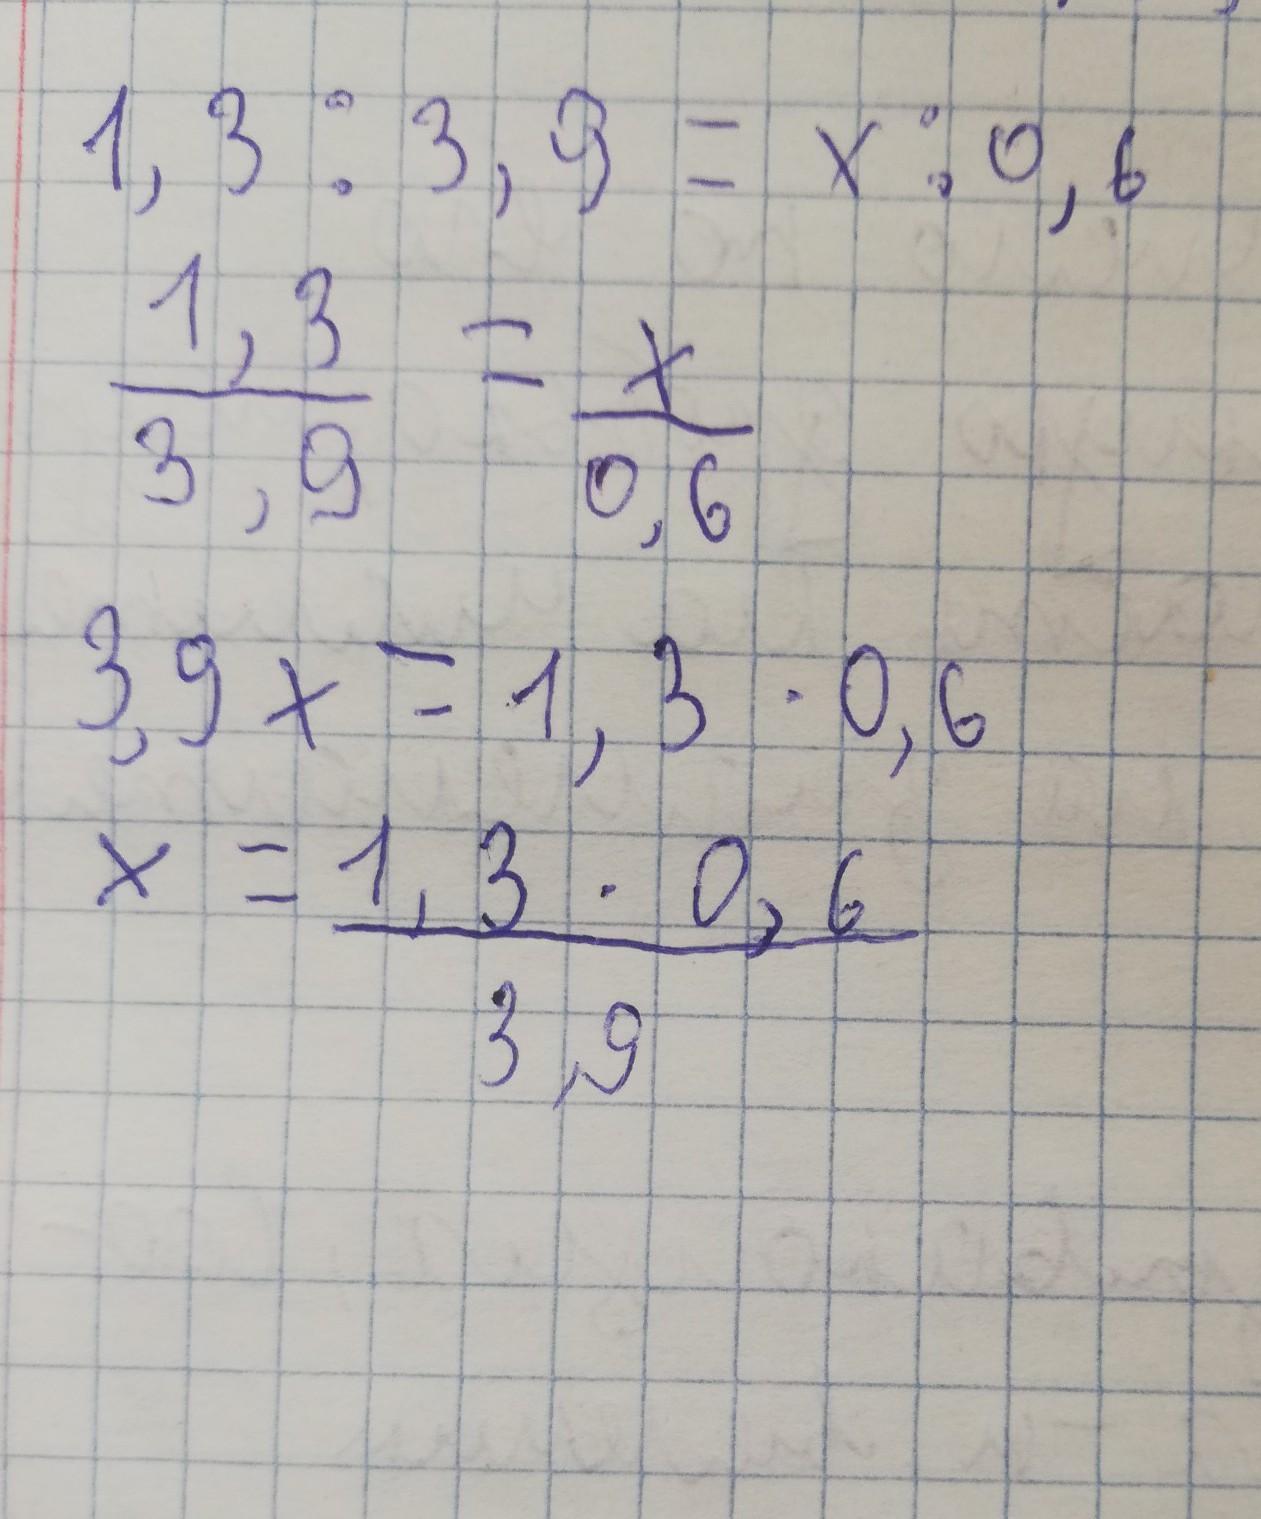 1,3 : 3,9 = x : 0,6
1,3/3,9 = x/0,6
3,9x = 1,3 · 0,6
x = 1,3 · 0,6/3,9